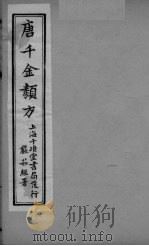 唐千金類方
上海千頃堂書局發行